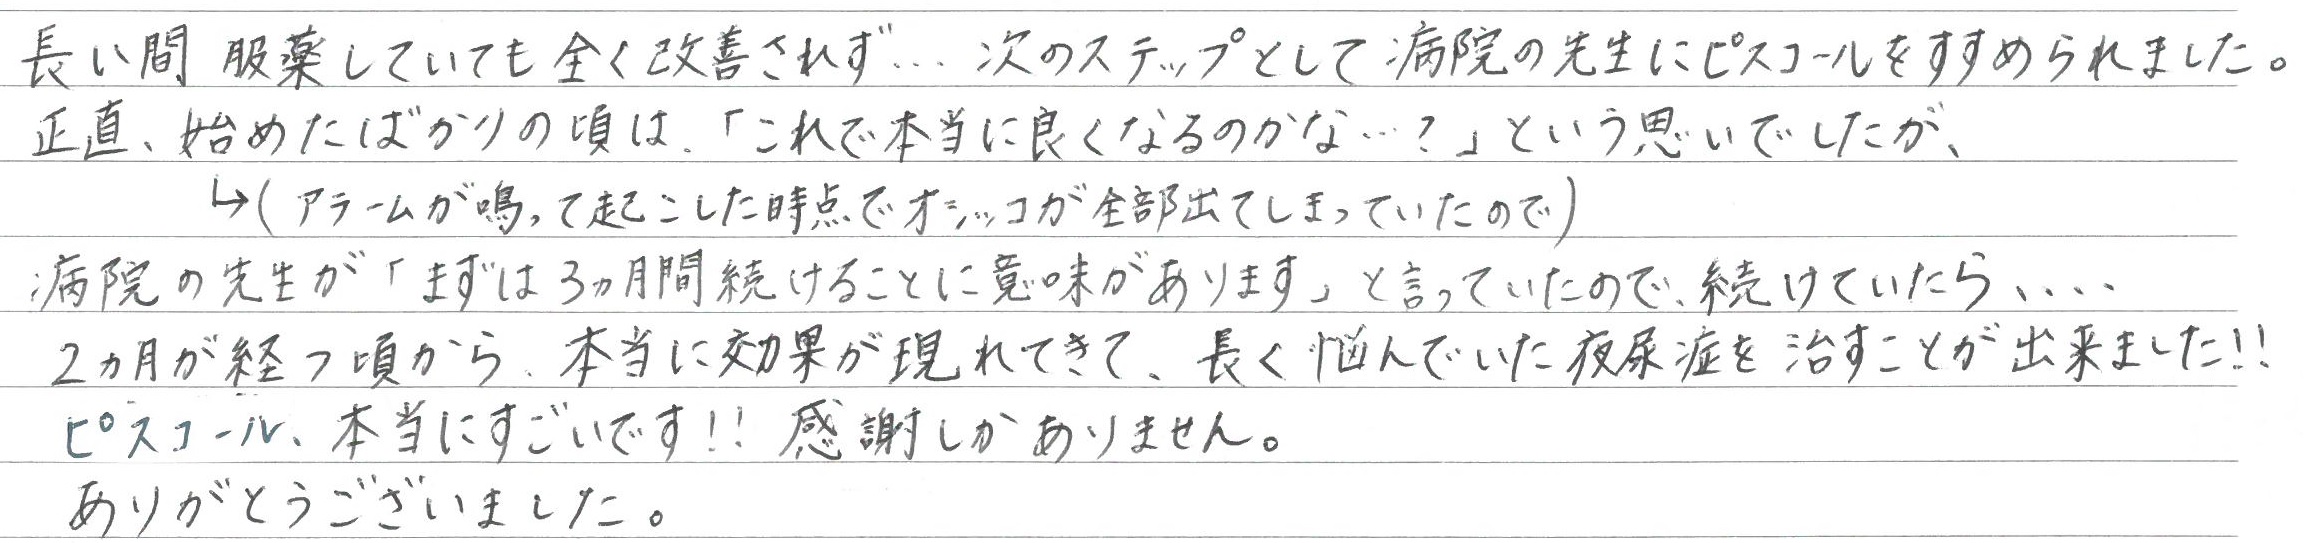 長い間 服薬していても全く改善されず… 次のステップとして病院の先生にピスコールをすすめられました。
正直、始めたばかりの頃は、「これで本当に良くなるのかな…?」という思いでしたが、
↳(アラームが鳴って起こした時点でオシッコが全部出てしまっていたので)
病院の先生が「まずは3ヵ月間続けることに意味があります」と言っていたので、続けていたら、、、、
2ヵ月が経つ頃から、本当に効果が現れてきて、長く悩んでいた夜尿症を治すことが出来ました!!
ピスコール、本当にすごいです!! 感謝しかありません。
ありがとうございました。